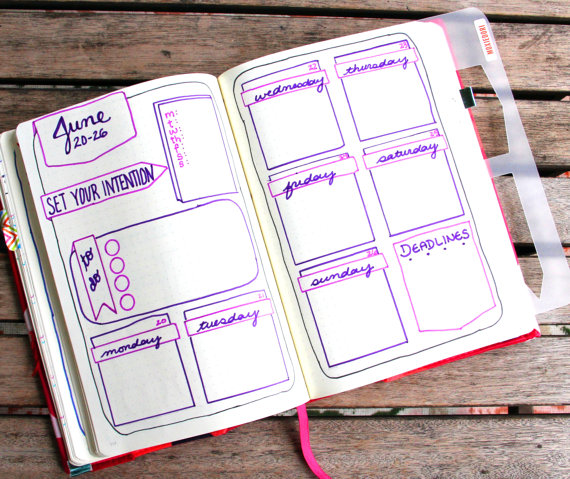 June
20-26
m:
t:
w:
t:
f:
s:
s:
SET YOUR INTENTION
to
do
20
monday
21
tuesday
22
wednesday
23
thursday
friday
25
saturday
26
sunday
DEADLINES